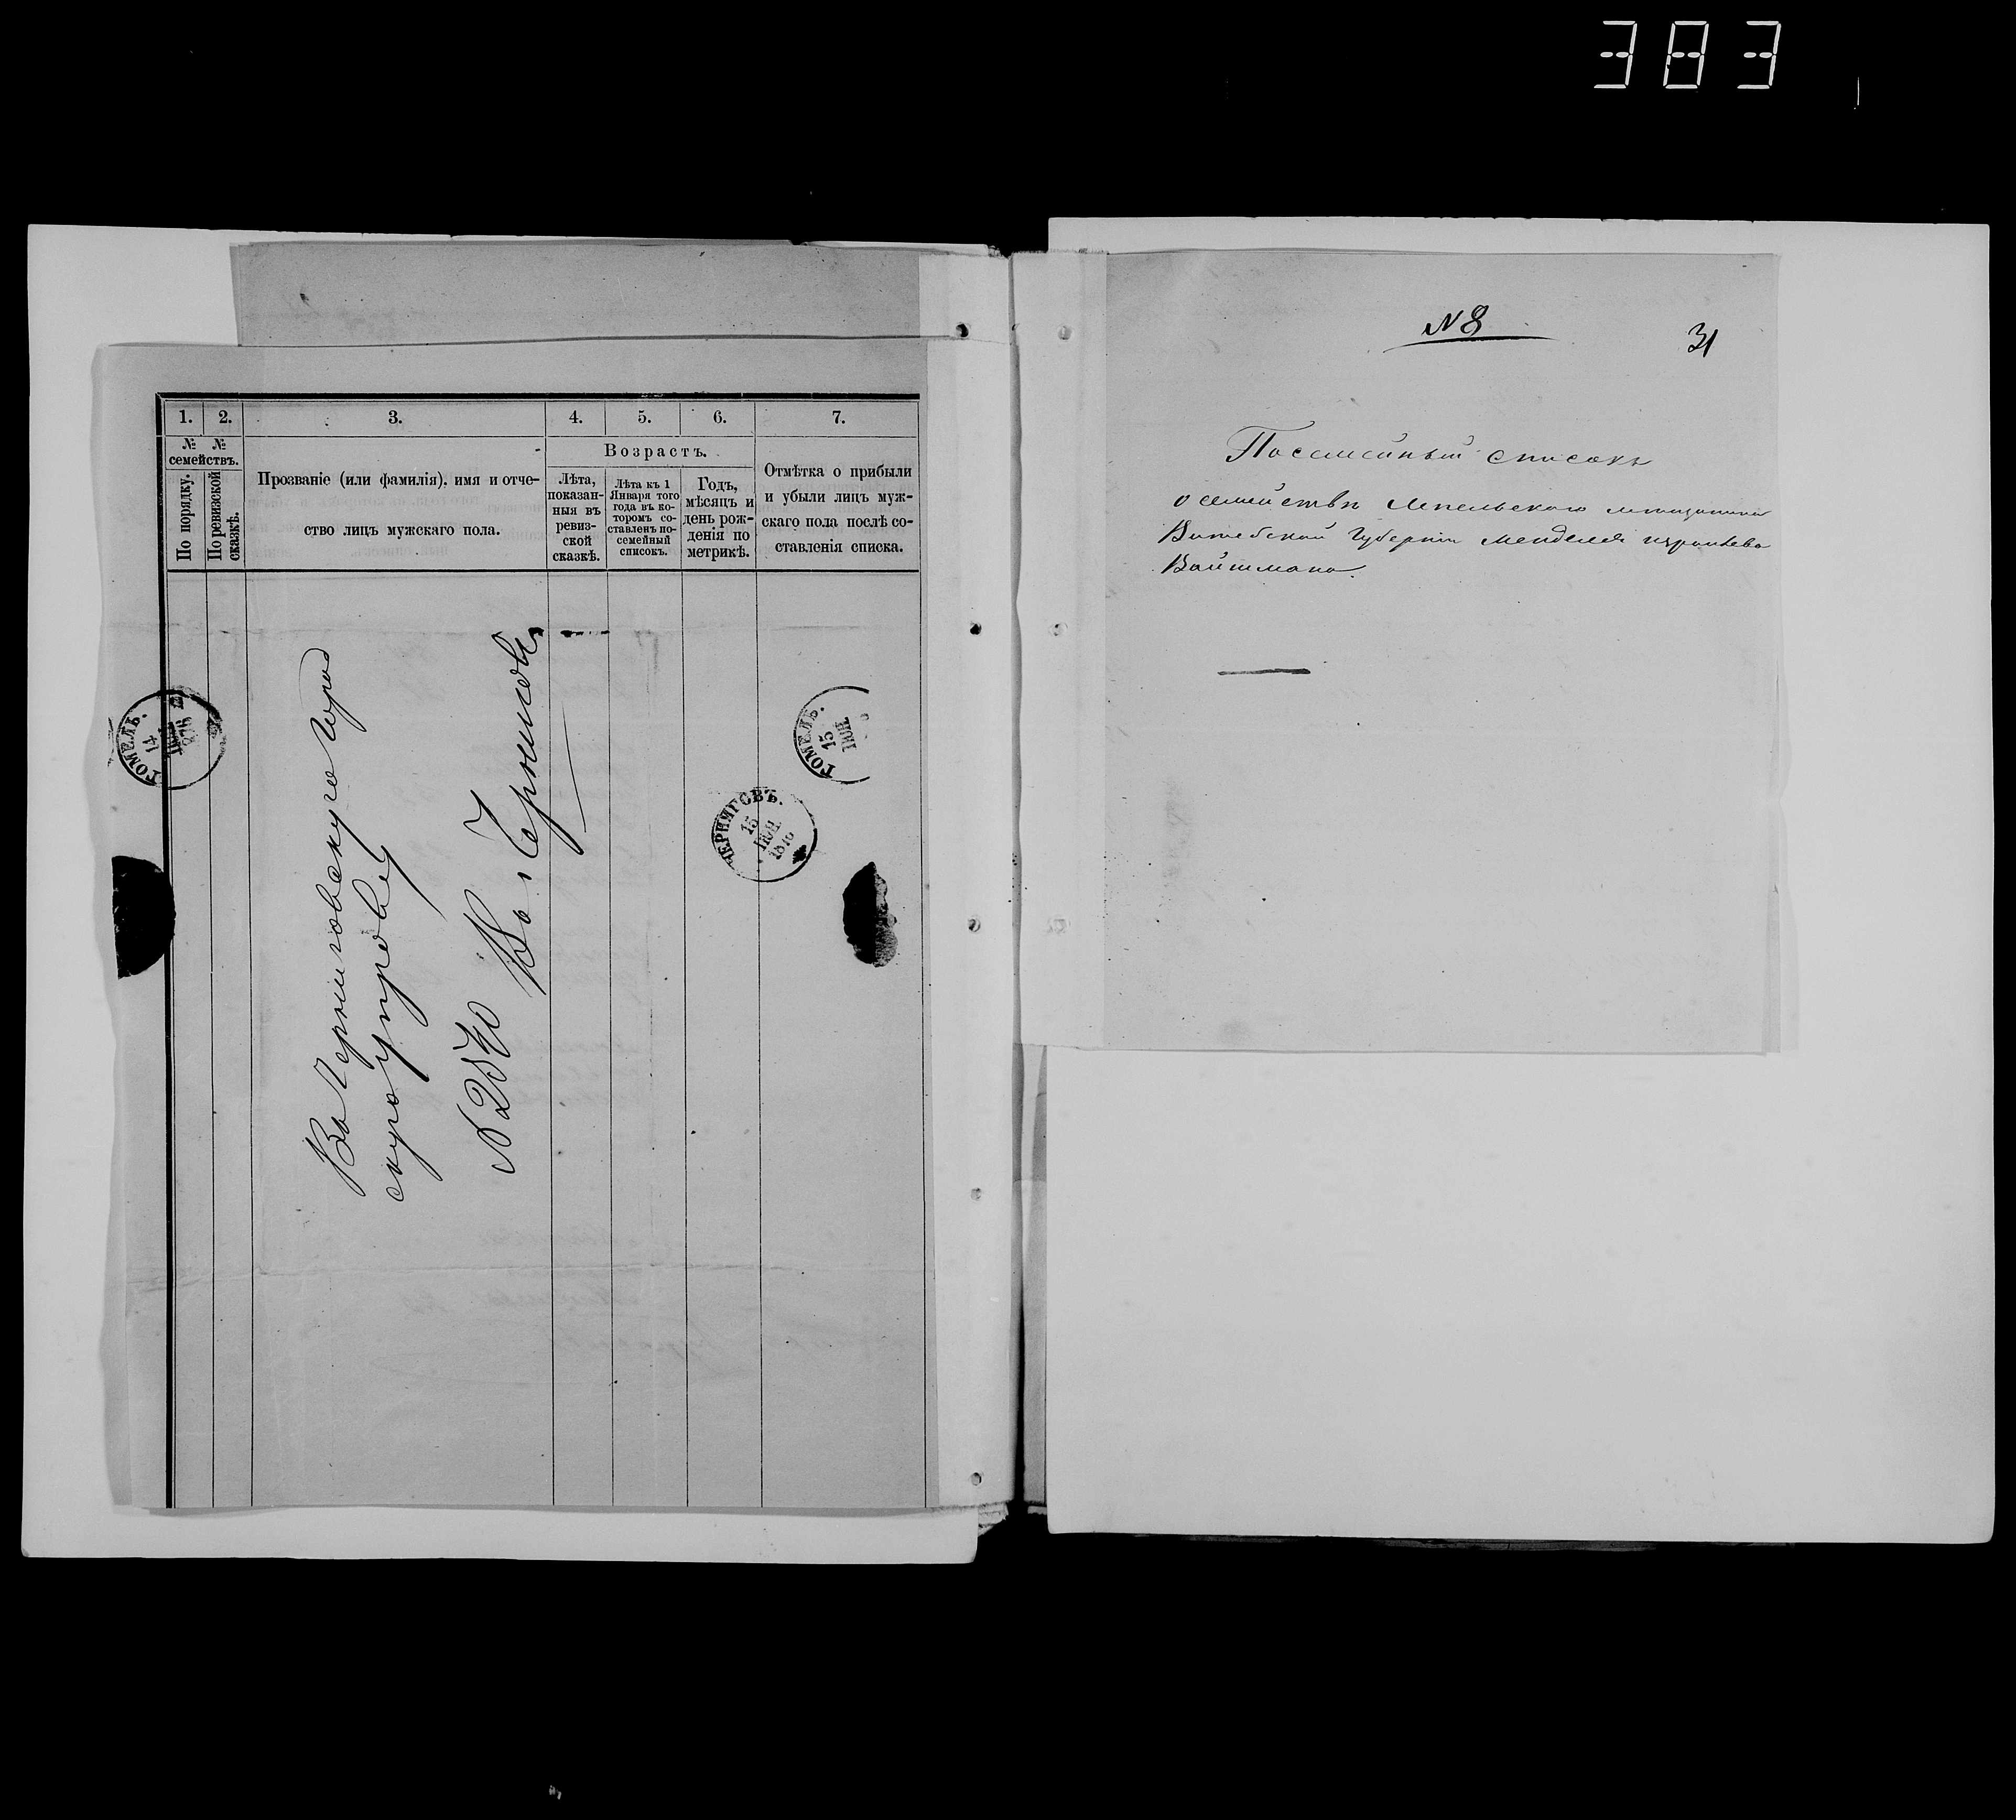 383
1. 2. 3. 4. 5. 6. 7.
№ №
семействъ.
По порядку.
По ревизской
сказкѣ.
Прозваніе (или фамилія), имя и отче-
ство лицъ мужскаго пола.
Возрастъ.
Лѣта,
показан-
ныя въ
ревиз-
ской
сказкѣ.
Лѣта къ 1
Января того
года въ ко-
торомъ со-
ставленъ по-
семейный
списокъ.
Годъ,
мѣсяцъ и
день рож-
денія по
метрикѣ.
Отмѣтка о прибыли
и убыли лицъ муж-
скаго пола послѣ со-
ставленія списка.
Въ Черниговскую Город
скую управу
№ 2540 Въ г. Черниговъ
ГОМЕЛЬ.
14
ГОМЕЛЬ.
15
ІЮН.
ЧЕРНИГОВЪ.
15
ІЮН.
1876
№ 8
31
Посемейный списокъ
о семействѣ Лепельскаго мѣщанина
Витебской Губерніи Менделя Израилева
Вайтмана.